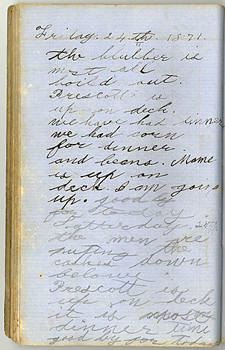 Friday. 24th. 1871.
the blubber is
most all
boild out.
Prescott is
up on deck.
we have had dinner
we had corn
for dinner.
and beans. Mame
is up on
deck I am going
up. good by
for to day.
the men are
the
casks down
below.
Prescott is
up on deck
it is most
dinner time
good by for today